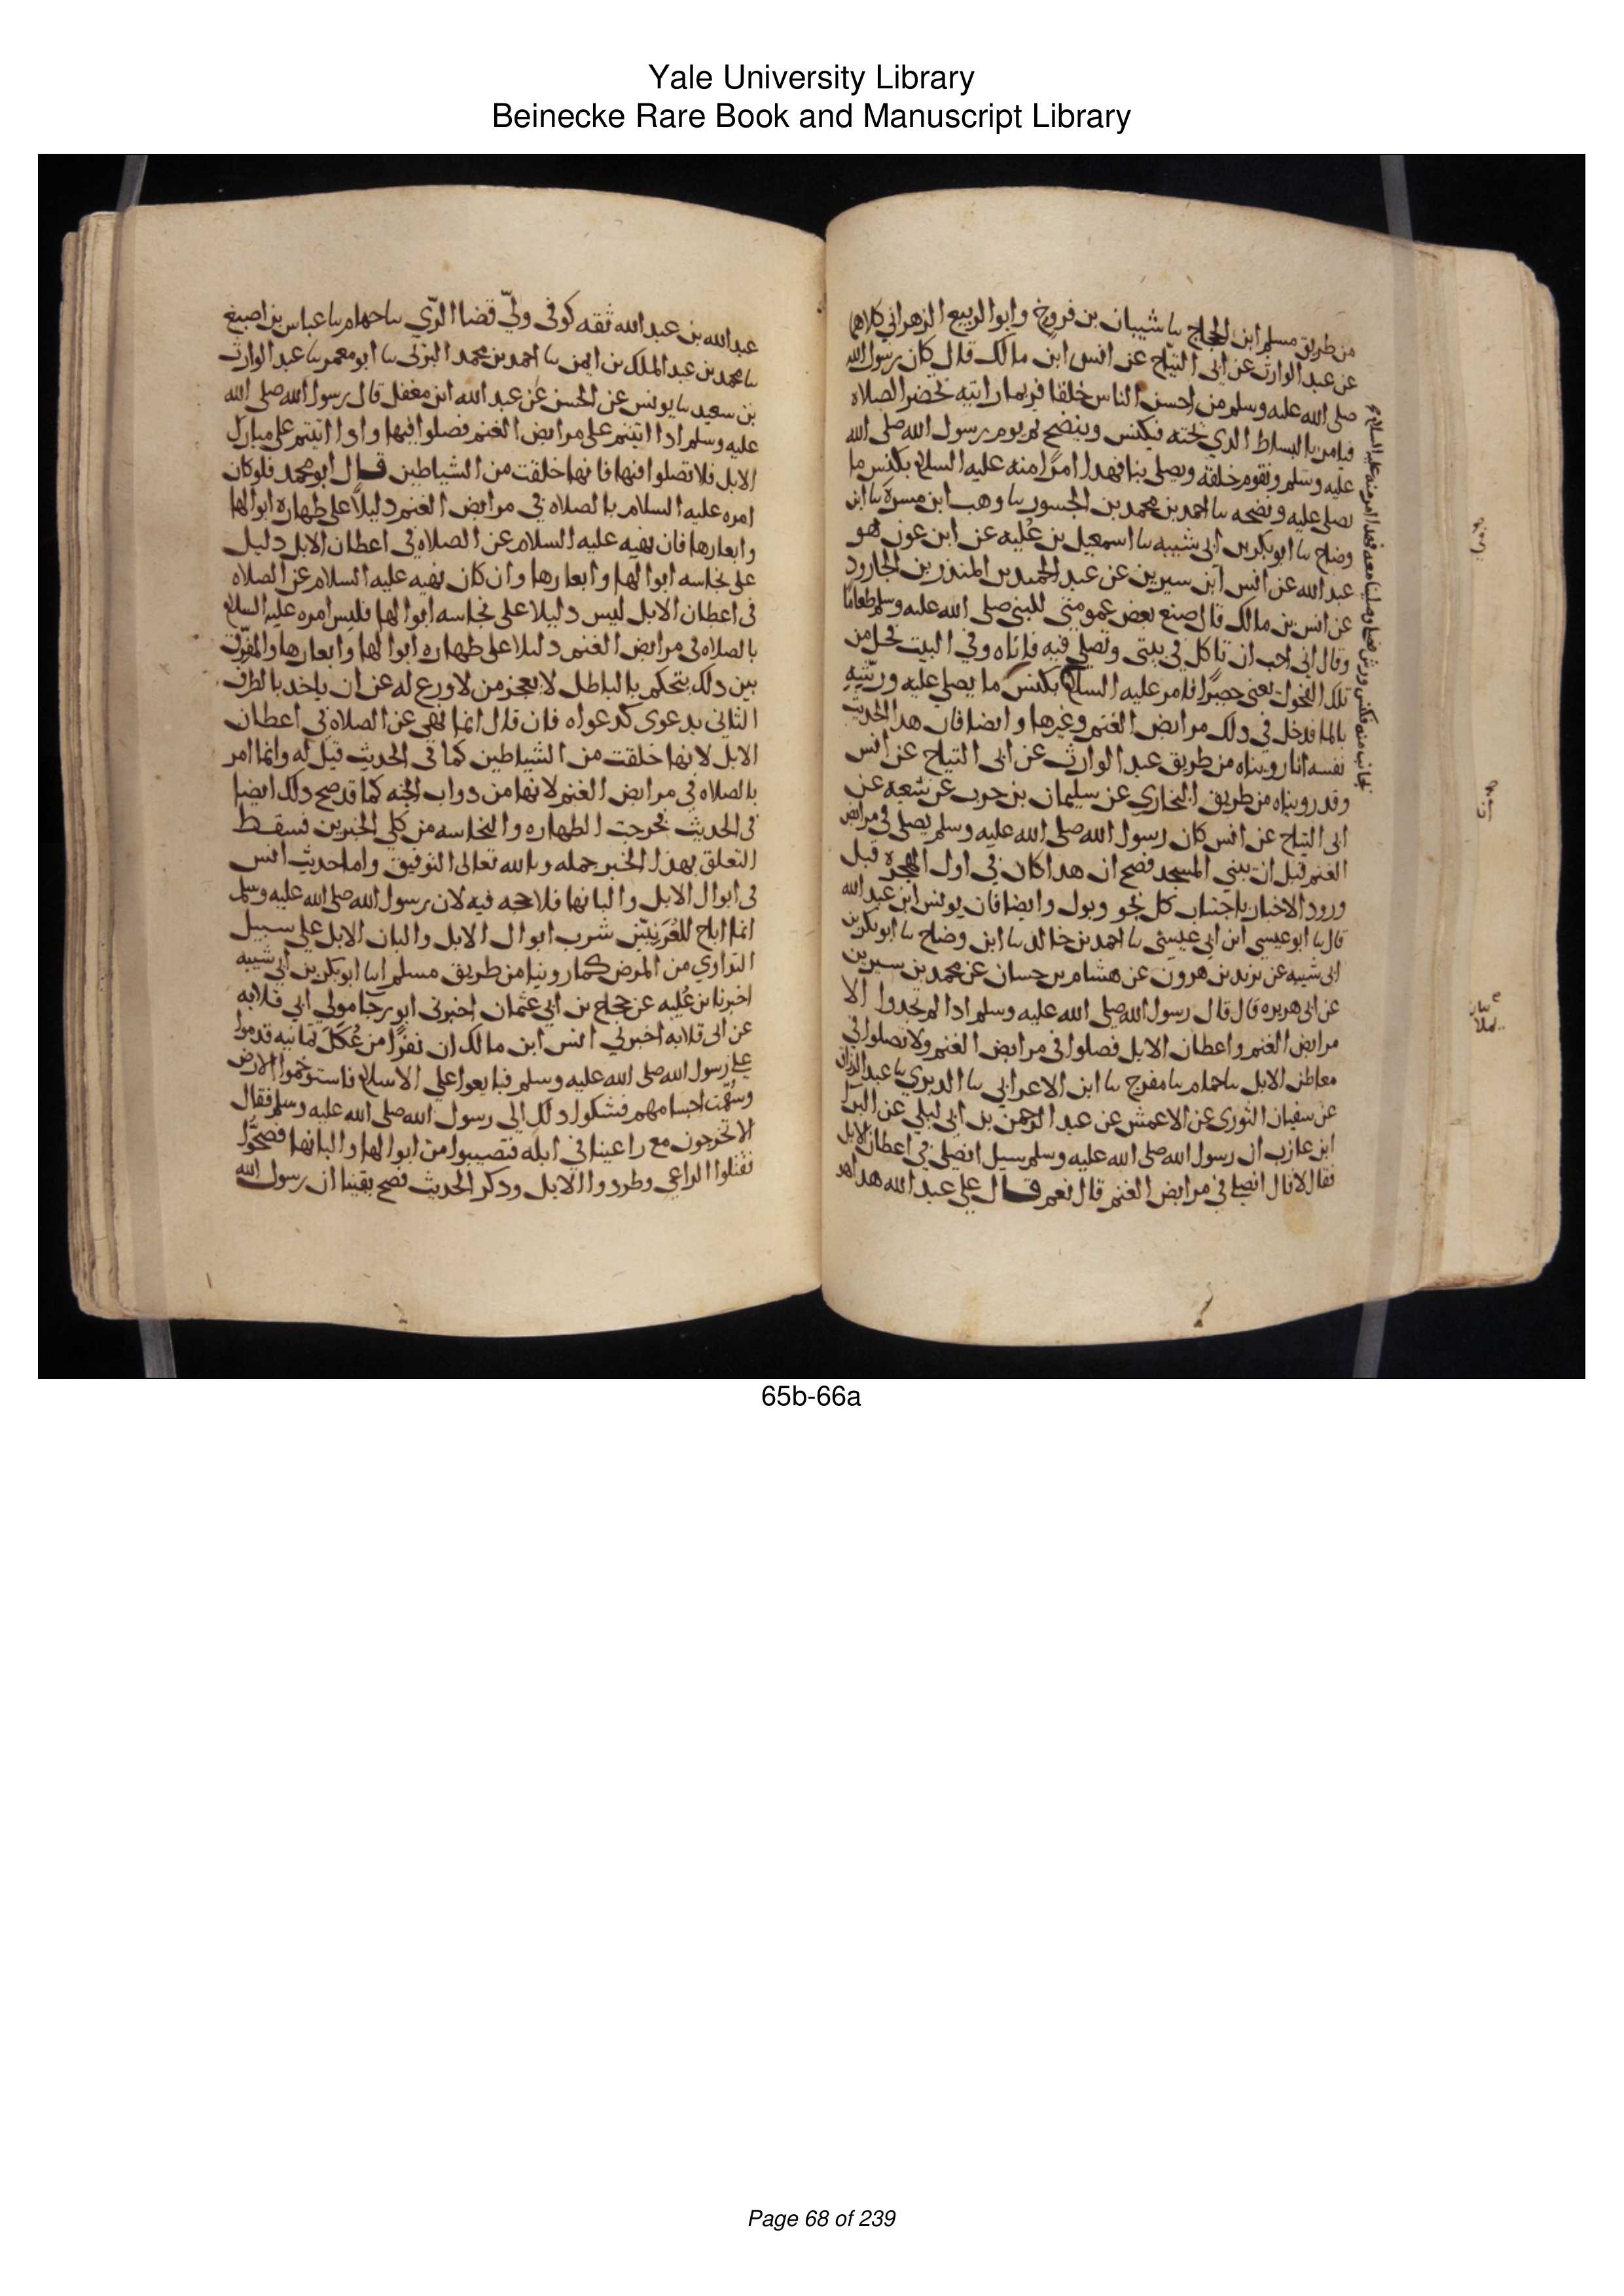 Yale University Library
Beinecke Rare Book and Manuscript Library
من طريق مسلم ابن الحجاج سا شيبان بن فروخ وابوا الربيع الزهراني كلاهما
عن عبد الوارث عن ابى التياح عن انس ابن مالك قال كان رسول الله
صلى الله عليه وسلم من احسن الناس خلقا فربما راتيه تحضر الصلاه
فيامر بالبساط الدي تحته فيكنس وينضح ثم يوم رسول الله صلى الله
عليه وسلم ونقوم خلفه ويصلي بنا فهدا امرًا منه عليه السلام بكنس ما
يصلى عليه ونضحه سا احمد بن محمد بن الجسور سا وهب ابن مسرة سا ابن
وضاح سا ابو بكر بن ابى شيبه سا اسمعيل بن عُليه عن ابن عون هو
عبد الله عن انس ابن سيرين عن عبد الحميد بن المنذر بن الجارود
عن انس بن مالك قال صنع بعض عمومتي للنبي صلى الله عليه وسلم طعامًا
وقال انى احب ان تاكل في بيتى وتصلي فيه فاتاه وفي البيت فحل من
تلك الفحول يعنى حصيرًا فامر عليه السلام بكنس ما يصلي عليه ورشه
بالما فدخل في دلك مرابض الغنم وغيرها وايضا فان هدا الحديث
نفسه انا رويناه من طريق عبد الوارث عن ابى التياح عن انس
وقد رويناه من طريق البخاري عن سليمان بن حرب عن شعبه عن
ابى التياح عن انس كان رسول الله صلى الله عليه وسلم يصلى في مرابض
الغنم قبل ان يبني المسجد فصح ان هدا كان في اول الهجرة قبل
ورود الاخبار باجتناب كل نجو وبول وايضا فان يونس ابن عبد الله
قال سا ابو عيسى ابن ابى عيسى سا احمد بن خالد سا ابن وضاح سا ابو بكر بن
ابى شيبه عن يزيد بن هرون عن هشام بن حسان عن محمد بن سيرين
عن ابى هريره قال قال رسول الله صلى الله عليه وسلم ادا لم تجدوا الا
مرابض الغنم واعطان الابل فصلوا في مرابض الغنم ولا تصلوا في
معاطن الابل سا حمام سا مفرج سا ابن الاعرابي سا الدبري سا عبد الرزاق
عن سفيان الثورى عن الاعمش عن عبد الرحمن بن ابى ليلي عن البرآ
ابن عازب ان رسول الله صلى الله عليه وسلم سيل انصلى في اعطان الابل
فقال لا قال انصلي في مرابض الغنم قال نعم قال علي عبد الله هدا هو
عبد الله بن عبد الله ثقه كوفى ولىّ قضا الرّي سا حمام سا عباس بن اصبغ
سا محمد بن عبد الملك بن ايمن سا احمد بن محمد البزتى سا ابو معمر سا عبد الوارث
بن سعيد سا يونس عن الحسن عن عبد الله ابن مغفل قال رسول الله صلى الله
عليه وسلم ادا اتيتم على مرابض الغنم فصلوا فيها وادا اتيتم على مبارك
الابل فلا تصلوا فيها فانها خلقت من الشياطين قال ابو محمد فلو كان
امره عليه السلام بالصلاه في مرابض الغنم دليلاً على طهاره ابوالها
وابعارها فان نهيه عليه السلام عن الصلاه في اعطان الابل دليل
على نجاسه ابوالها وابعارها وان كان نهيه عليه السلام عن الصلاه
فى اعطان الابل ليس دليلا على نجاسه ابوالها فليس امره عليه السلام
بالصلاه في مرابض الغنم دليلا على طهاره ابوالها وابعارها والمفرّق
بين دلك يتحكم بالباطل لا يعجز من لا ورع له عن ان ياخد بالطرف
الثانى بدعوى كدعواه فان قال انما نهى عن الصلاه في اعطان
الابل لانها خلقت من الشياطين كما فى الحديث قيل له وانما امر
بالصلاه في مرابض الغنم لانها من دواب الجنه كما قد صح دلك ايضا
فى الحديث فخرجت الطهاره والنجاسه من كلي الخبرين فسقط
التعلق بهذا الخبر جمله وبالله تعالى التوفيق واما حديث انس
فى ابوال الابل والبانها فلا حجه فيه لان رسول الله صلى الله عليه وسلم
انما اباح للعُرَنِيّين شرب ابوال الابل والبان الابل على سبيل
التداوي من المرض كما روينا من طريق مسلم اسا ابو بكر بن ابى شيبه
اخبرنا بن عُليه عن حجاج بن ابى عثمان اخبرنى ابو رجا مولي ابى قلابه
عن ابى قلابه اخبرني انس ابن مالك ان نفرًا من عُكل ثمانيه قدموا
على رسول الله صلى الله عليه وسلم فبايعوا على الاسلام فاستوخموا الارض
وسقمت اجسامهم فشكوا دلك الى رسول الله صلى الله عليه وسلم فقال
الا تخرجون مع راعينا في ابله فتصيبوا من ابوالها والبانها فصحّوا
فقتلوا الراعي وطردوا الابل ودكر الحديث فصح يقينا ان رسول الله
65b-66a
Page 68 of 239